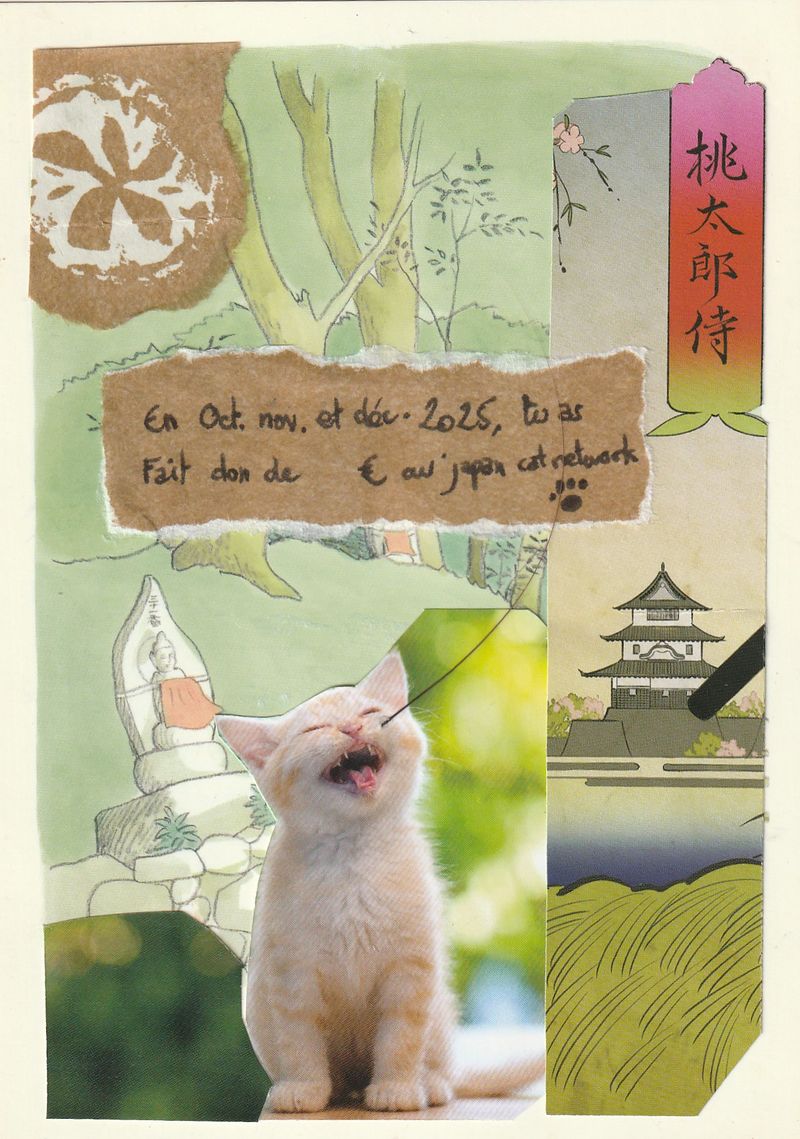 桃太郎侍
En Oct. nov. et déc. 2025, tu as
Fait don de € au japan cat network
三十一番